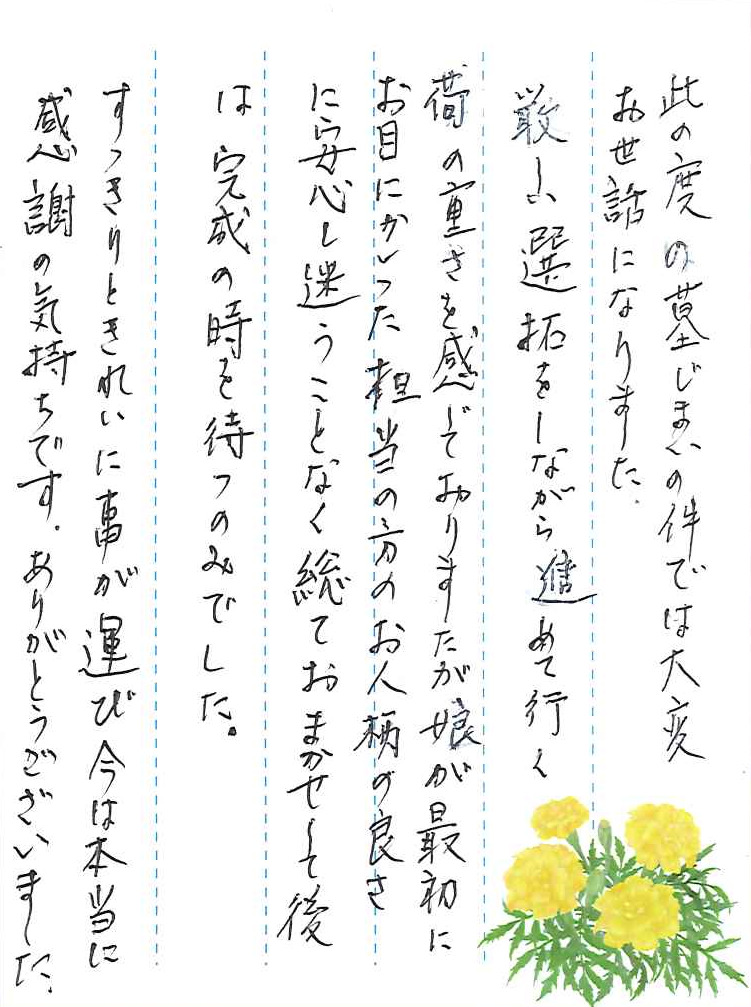 此の度の墓じまいの件では大変
お世話になりました.
散々選拓をしながら進めて行く
荷の重さを感じておりますたが娘が最初に
お目にかかった担当の方のお人柄の良さ
に安心し迷うことなく総ておまかせして後
は完成の時を待つのみでした。
すっきりときれいに事が運び今は本当に
感謝の気持ちです.ありがとうございました.